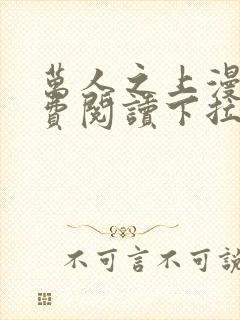 萬人之上漫
費閱讀下拉
不可言不可說